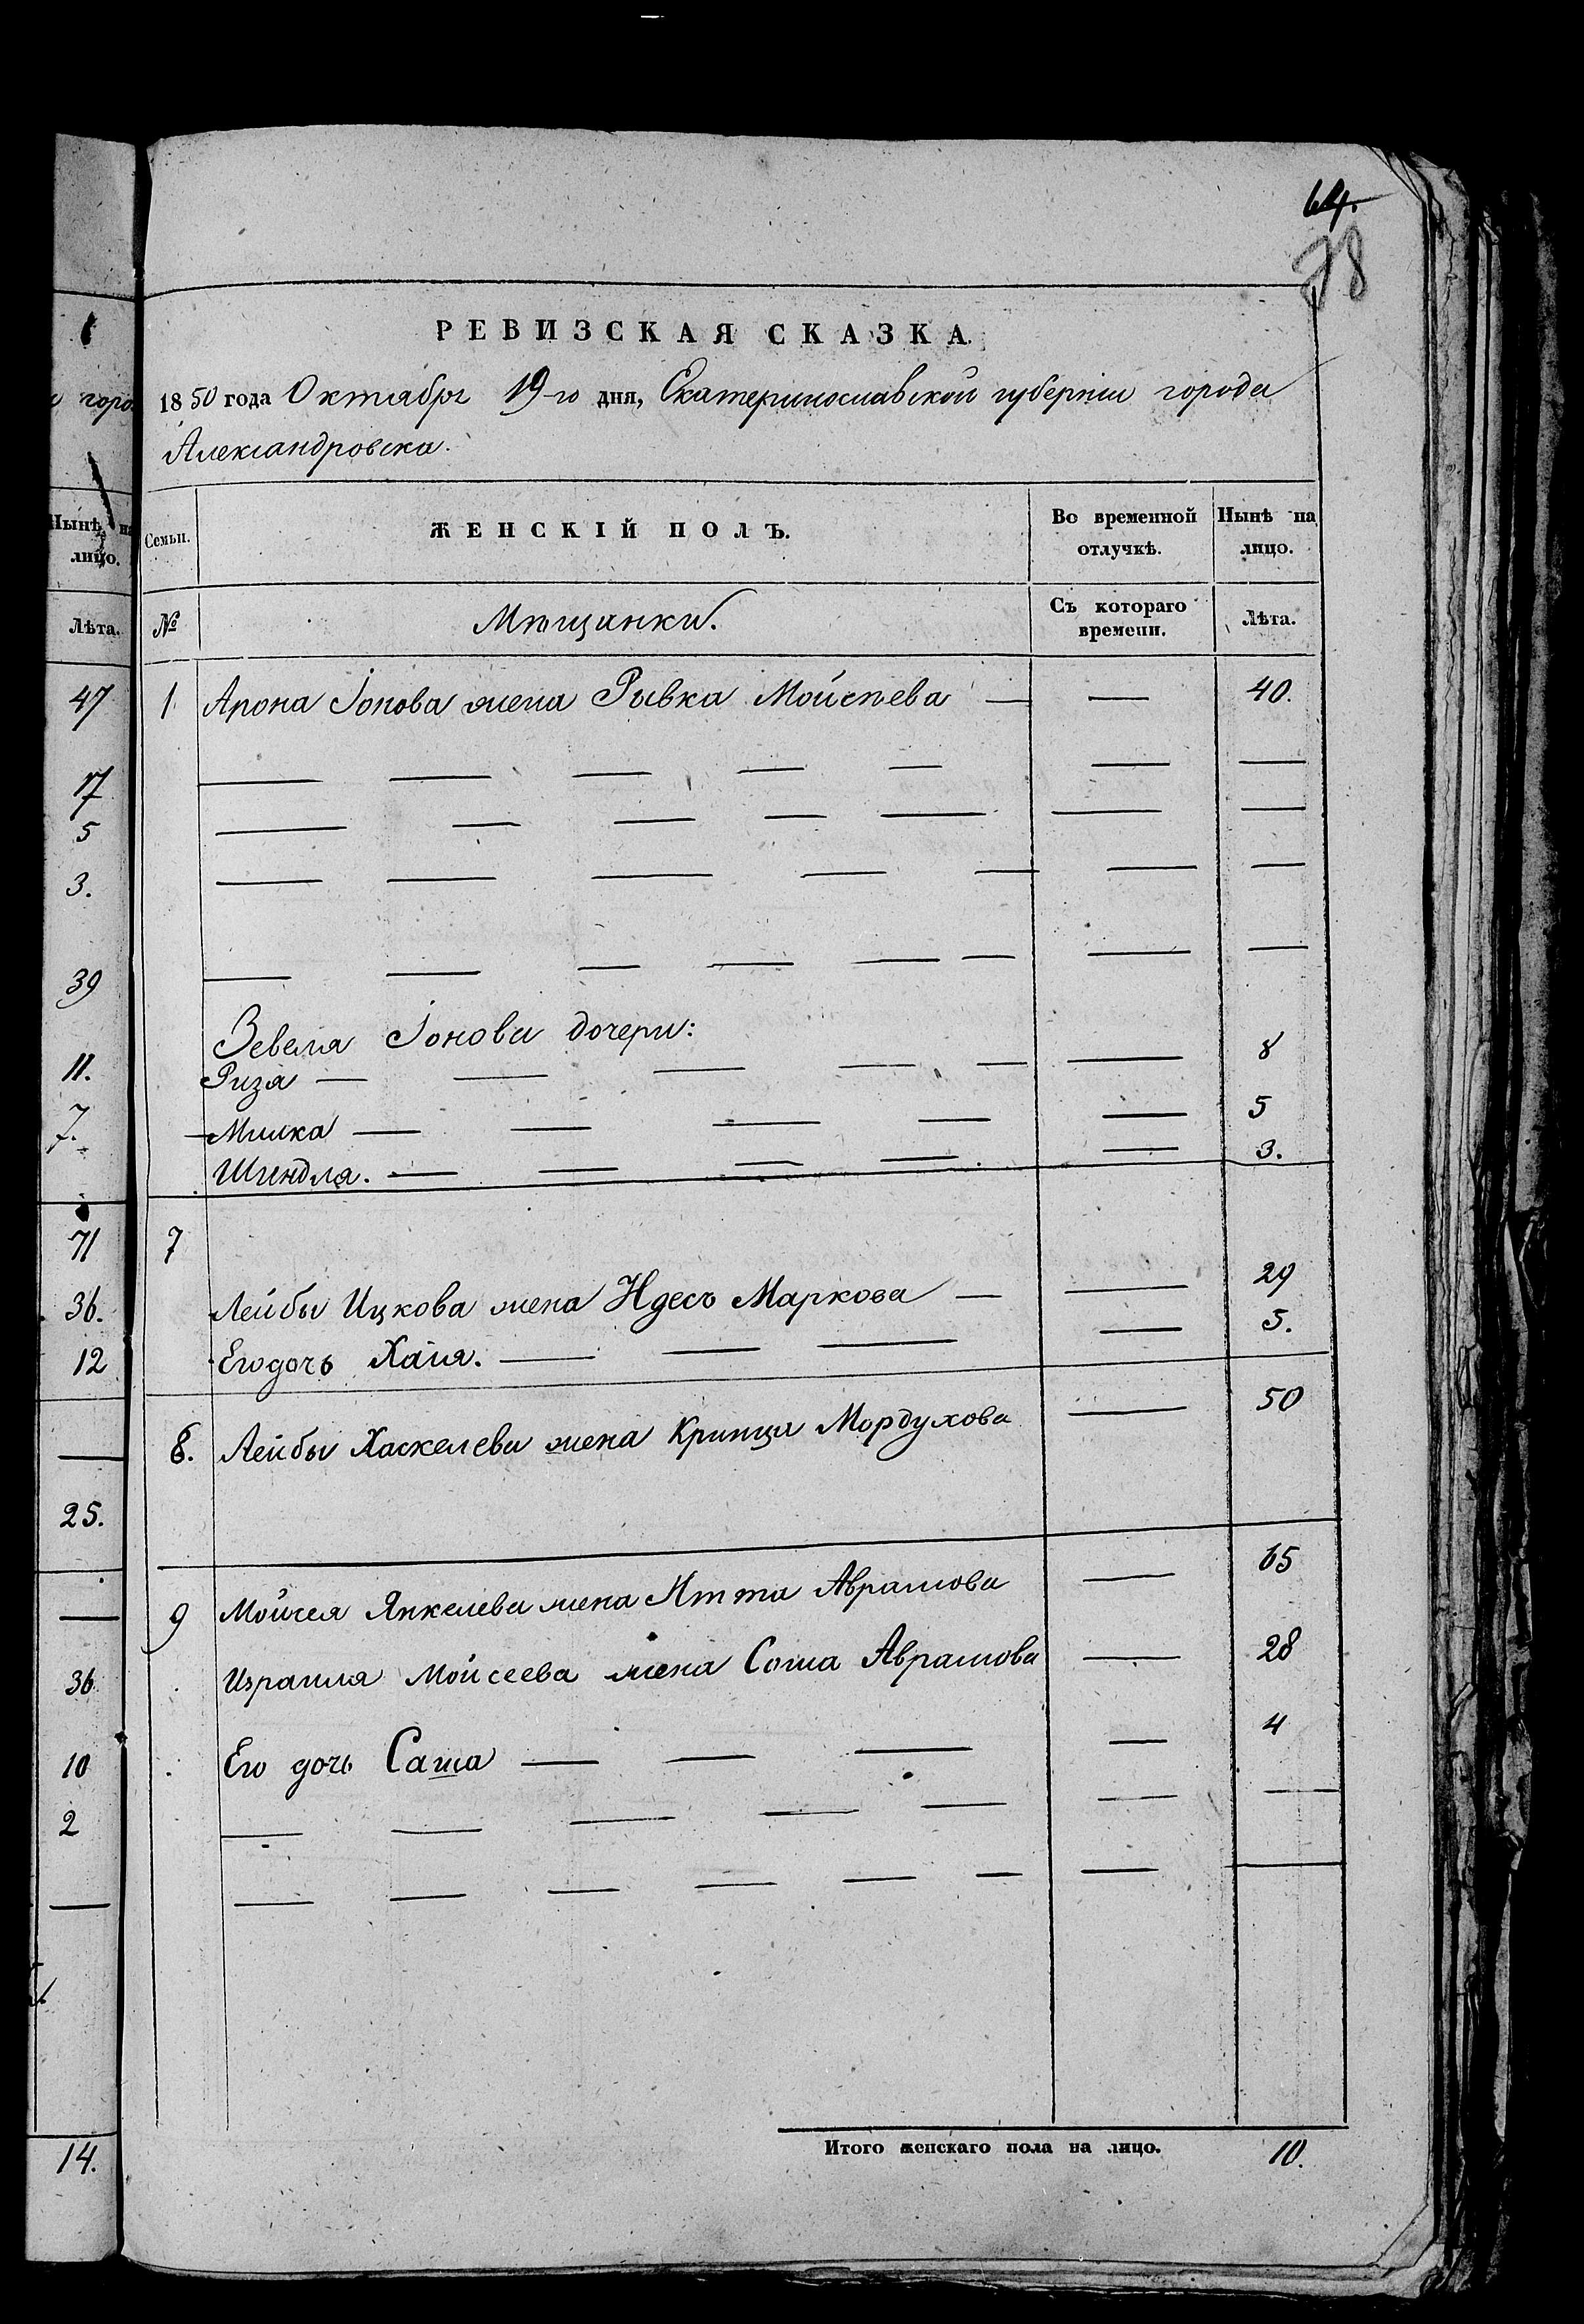 64.
78
РЕВИЗСКАЯ СКАЗКА.
1850 года Октября 19-го дня, Екатеринославской губернии города
Александровска.
горо
Нынѣ на
лицо.
Лѣта.
47
17
5
3.
39
11.
7.
71
36.
12
25.
36
10
2
14.
Семьи.
ЖЕНСКІЙ ПОЛЪ.
Во временной
отлучкѣ.
Нынѣ на
лицо.
№
Мѣщанки.
Съ котораго
времени.
Лѣта.
1 Арона Іонова жена Рывка Мойсѣева — — 40.
Зевеля Іонова дочери:
Ризя — — — — — — 8
Милка — — — — — 5
Шиндля. — — — — — 3.
7
Лейбы Ицкова жена Идесъ Маркова — — 29
Его дочь Хая. — — — — 5.
8. Лейбы Хаскелева жена Криица Мордухова — 50
9 Мойсея Янкелева жена Итта Абрамова — 65
Израиля Мойсеева жена Сома Абрамова — 28
Его дочь Саша — — — — 4
Итого женскаго пола на лицо. 10.